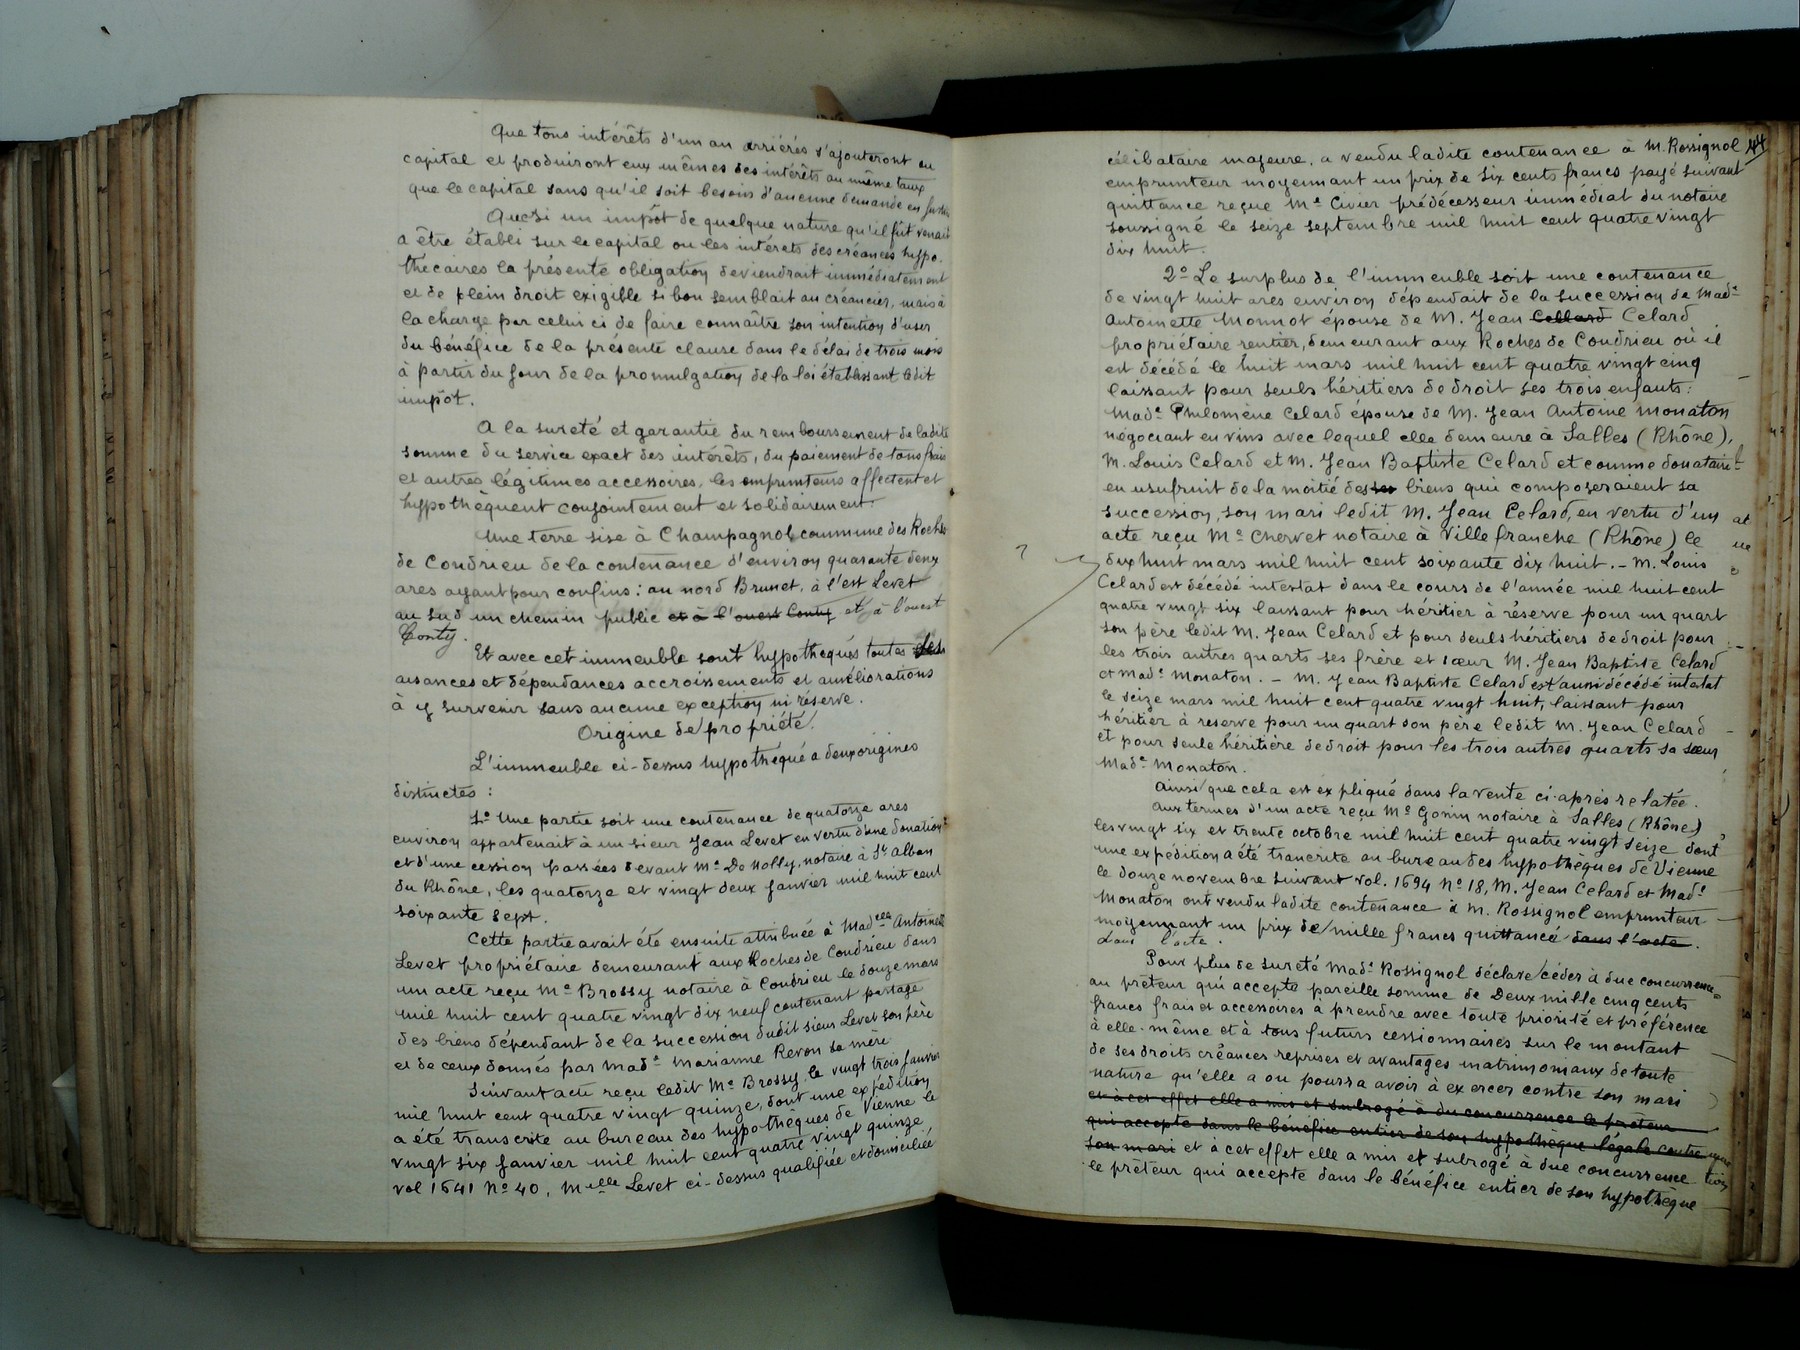 Que tous intérêts d'un an arriérés s'ajouteront au
capital et produiront eux mêmes des intérêts au même taux
que le capital sans qu'il soit besoin d'aucune demande en justice
Quesi un impôt de quelque nature qu'il fut venait
a être établi sur le capital ou les intérets des créances hypo-
thécaires la présente obligation deviendrait immédiatement
et de plein droit exigible si bon semblait au créancier, mais à
la charge par celui ci de faire connaître son intention d'user
du bénéfice de la présente clause dans le délai de trois mois
à partir du jour de la promulgation de la loi établissant ledit
impôt.
A la sureté et garantie du remboursement de ladite
somme du service exact des intérêts, du paiement de tous frais
et autres légitimes accessoires, les emprunteurs affectent et
hypothèquent conjointement et solidairement.
Une terre sise à Champagnol commune des Roches
de Condrieu de la contenance d'environ quarante deux
ares ayant pour confins : au nord Brunet, à l'est Levet
au sud un chemin public et à l'ouest Conty et à l'ouest
Conty.
Et avec cet immeuble sont hypothequés toutes les
aisances et dépendances accroissements et améliorations
à y survenir sans aucune exception ni réserve.
Origine de propriété
L'immeuble ci-dessus hypothequé a deux origines
distinctes :
1º Une partie soit une contenance de quatorze ares
environ appartenait à un sieur Jean Levet en vertu d'une donation
et d'une cession passées devant Me De Nolly, notaire à St Alban
du Rhône, les quatorze et vingt deux janvier mil huit cent
soixante sept.
Cette partie avait été ensuite attribuée à Madelle Antoinette
Levet propriétaire demeurant aux Roches de Condrieu dans
un acte reçu Me Brossy notaire à Condrieu le douze mars
mil huit cent quatre vingt dix neuf contenant partage
des biens dépendant de la succession dudit sieur Levet son père
et de ceux donnés par Made Marianne Revon sa mère
Suivant acte reçu ledit Me Brossy le vingt trois janvier
mil huit cent quatre vingt quinze, dont une expédition
a été transcrite au bureau des hypothèques de Vienne le
vingt six janvier mil huit cent quatre vingt quinze
vol 1641 Nº 40, Melle Levet ci-dessus qualifiée et domiciliée
célibataire majeure, a vendu ladite contenance à M. Rossignol 44
emprunteur moyennant un prix de six cents francs payé suivant
quittance reçue Me Civier prédécesseur immédiat du notaire
soussigné le seize septembre mil huit cent quatre vingt
dix huit.
2º Le surplus de l'immeuble soit une contenance
de vingt huit ares environ dépendait de la succession de Made
Antoinette Monnot épouse de M. Jean Cellard Celard
propriétaire rentier, demeurant aux Roches de Condrieu où il
est décédé le huit mars mil huit cent quatre vingt cinq
laissant pour seuls héritiers de droit ses trois enfants :
Made Philomène Celard épouse de M. Jean Antoine Monaton
négociant en vins avec lequel elle demeure à Salles (Rhône),
M. Louis Celard et M. Jean Baptiste Celard et comme donataire
en usufruit de la moitié des ses biens qui composeraient sa
succession, son mari ledit M. Jean Celard, en vertu d'un
acte reçu Me Chervet notaire à Villefranche (Rhône) le
dix huit mars mil huit cent soixante dix huit. - M. Louis
Celard est décédé intestat dans le cours de l'année mil huit cent
quatre vingt six laissant pour héritier à réserve pour un quart
son père ledit M. Jean Celard et pour seuls héritiers de droit pour
les trois autres quarts ses frère et sœur M. Jean Baptiste Celard
et Made Monaton. - M. Jean Baptiste Celard est aussi décédé intestat
le seize mars mil huit cent quatre vingt huit, laissant pour
héritier à reserve pour un quart son père ledit M. Jean Celard
et pour seule héritière de droit pour les trois autres quarts sa sœur
Made Monaton.
Ainsi que cela est expliqué dans la vente ci-après relatée.
Aux termes d'un acte reçu Me Gonin notaire à Salles (Rhône)
les vingt six et trente octobre mil huit cent quatre vingt seize dont
une expédition a été trancrite au bureau des hypothèques de Vienne
le douze novembre suivant vol. 1694 Nº 18, M. Jean Celard et Made
Monaton ont vendu ladite contenance à M. Rossignol emprunteur
moyennant un prix de mille francs quittancé dans l'acte.
dans l'acte.
Pour plus de sureté Made Rossignol déclare céder à due concurrence
au prêteur qui accepte pareille somme de Deux mille cinq cents
francs frais et accessoires à prendre avec toute priorité et préférence
à elle-même et à tous futurs cessionnaires sur le montant
de ses droits créances reprises et avantages matrimoniaux de toute
nature qu'elle a ou pourra avoir à exercer contre son mari
et à cet effet elle a mis et subrogé à du concurrence le prêteur
qui accepte dans le bénéfice entier de son hypothèque légale contre
son mari et à cet effet elle a mis et subrogé à due concurrence
le prêteur qui accepte dans le bénéfice entier de son hypothèque